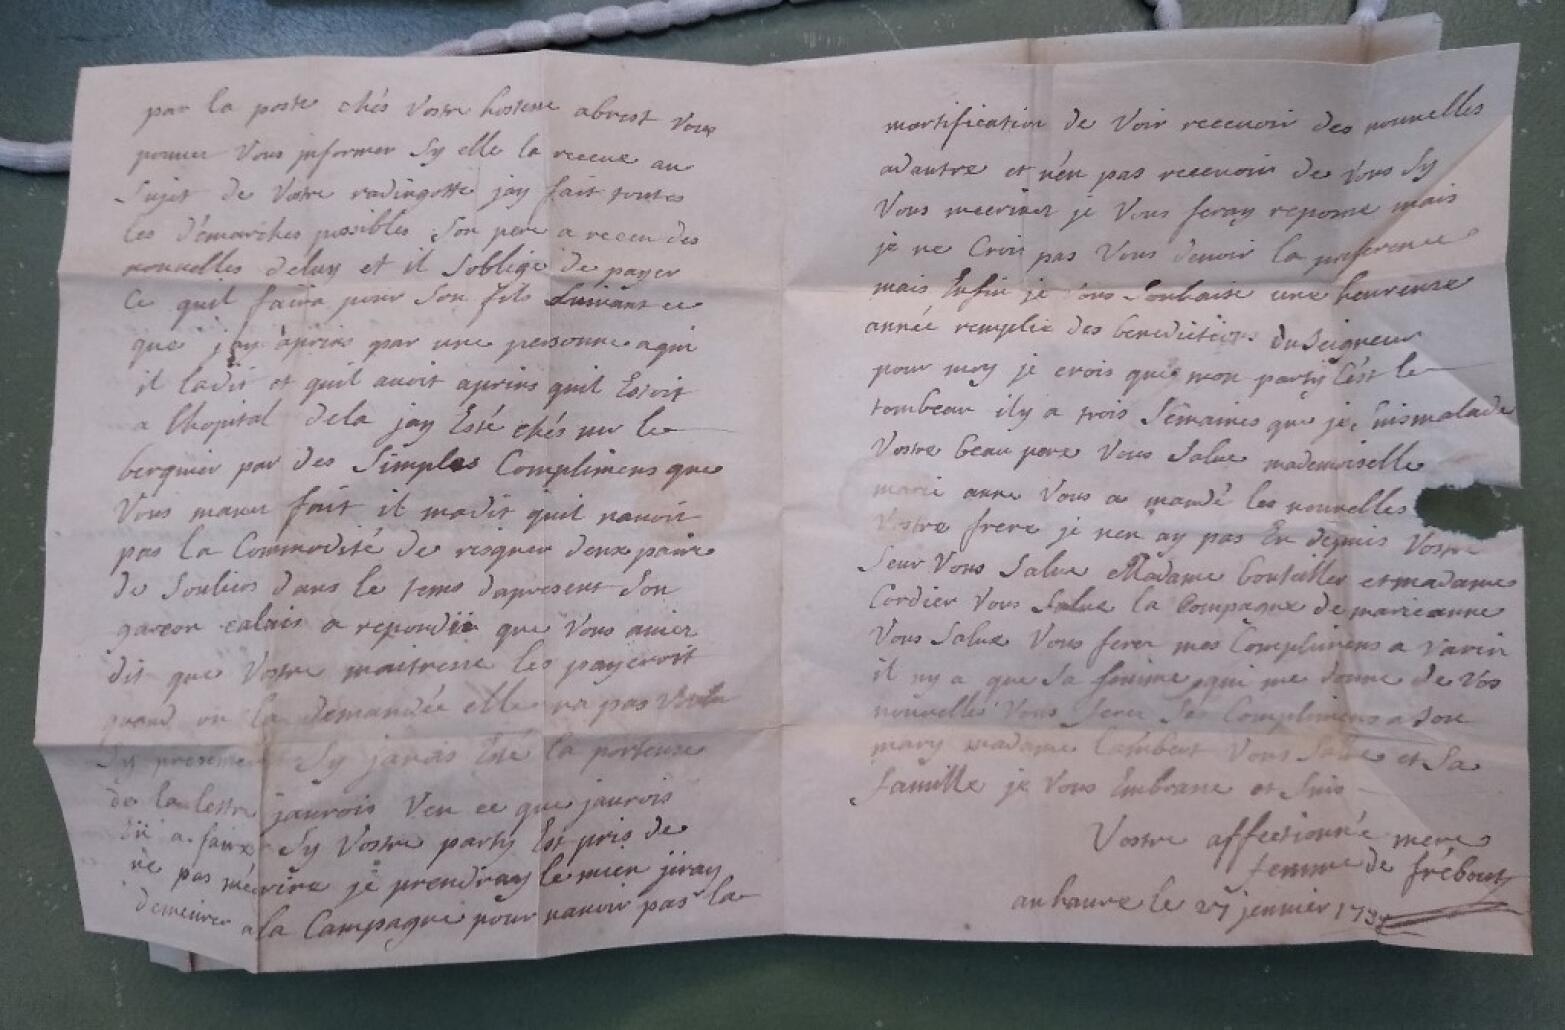 par la poste chés Vostre hostesse abrest Vous
pouuez Vous jnformer Sy elle la receue au
Sujet de Votre radingotte jay fait toutes
les démarches possibles Son pere a receu des
nouuelles deluy et il Soblige de payer
Ce quil faira pour Son fils Suiuant ce
que jay aprins par une personne aqui
il ladit et quil auoit aprins quil Estoit
a lhopital dela jay Esté chés mr le
berquier par des Simples Complimens que
Vous mauez fait il madit quil nauoit
pas la Commodité de risquer deux paire
de Souliers dans le tems dapresent Son
garcon calais a repondu que Vous auiez
dit que Vostre maitresse les payeroit
quand on la demandée elle na pas Voulu
Sy presenter Sy jauas Esté la porteuse
de la lettre jaurois Veu ce que jaurois
Eü a faire Sy Vostre party Est pris de
ne pas mécrire je prendray le mien jiray
demeurer ala Campagne pour nauoir pas la
mortification de Voir receuoir des nouuelles
adautre et nén pas receuoir de Vous Sy
Vous mecriuez je Vous feray reponse mais
je ne Crois pas Vous deuoir la preference
mais Enfin je Vous Souhaise une heureuse
année remplie des benedictions du Seigneur
pour moy je crois que mon party Cést le
tombeau ily a trois Semaines que je Suis malade
Vostre beau pere Vous Salue mademoiselle
marie anne Vous a mandé les nouuelles
Vostre frere je nen ay pas Eu depuis Vostre
Seur Vous Salue Madame bouteiller et madame
Cordier Vous Salue la Compagne de marieanne
Vous Salue Vous ferez mes Complimens a Varin
il ny a que Sa femme qui me donne de Vos
nouuelles Vous ferez Ses Complimens a Son
mary madame lambert Vous Salue et Sa
famille je Vous Embrasse et Suis
Vostre affectionnée mere
femme de frébourg
au haure le 27 jenuier 17